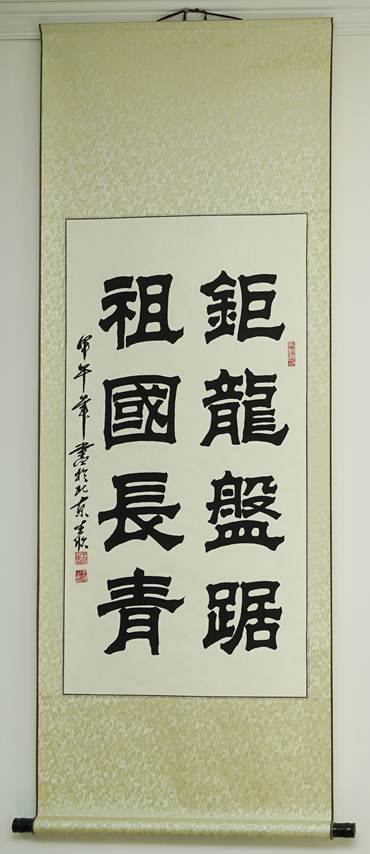 鉅龍盤踞
祖國長青
甲午年 書於北京